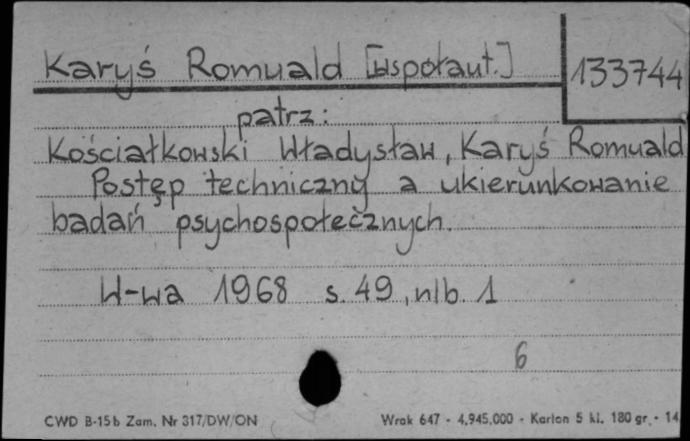 Karyś Romuald [współaut.] 133744
patrz:
Kościałkowski Władysław, Karyś Romuald
Postęp techniczny a ukierunkowanie
badań psychospołecznych.
W-wa 1968 s. 49, nlb. 1
6
CWD B-15b Zam. Nr 317/DW/ON Wrak 647 - 4.945.000 - Karton 5 kl. 180 gr. - 14